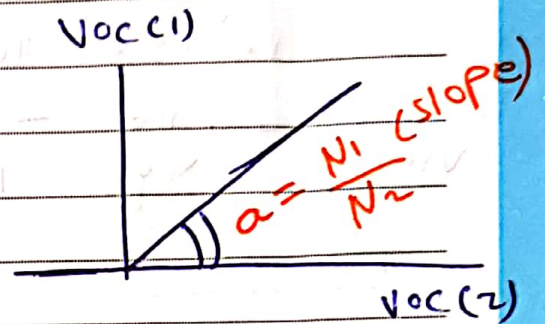 VOC(1)
a = N1/N2 (slope)
VOC(2)